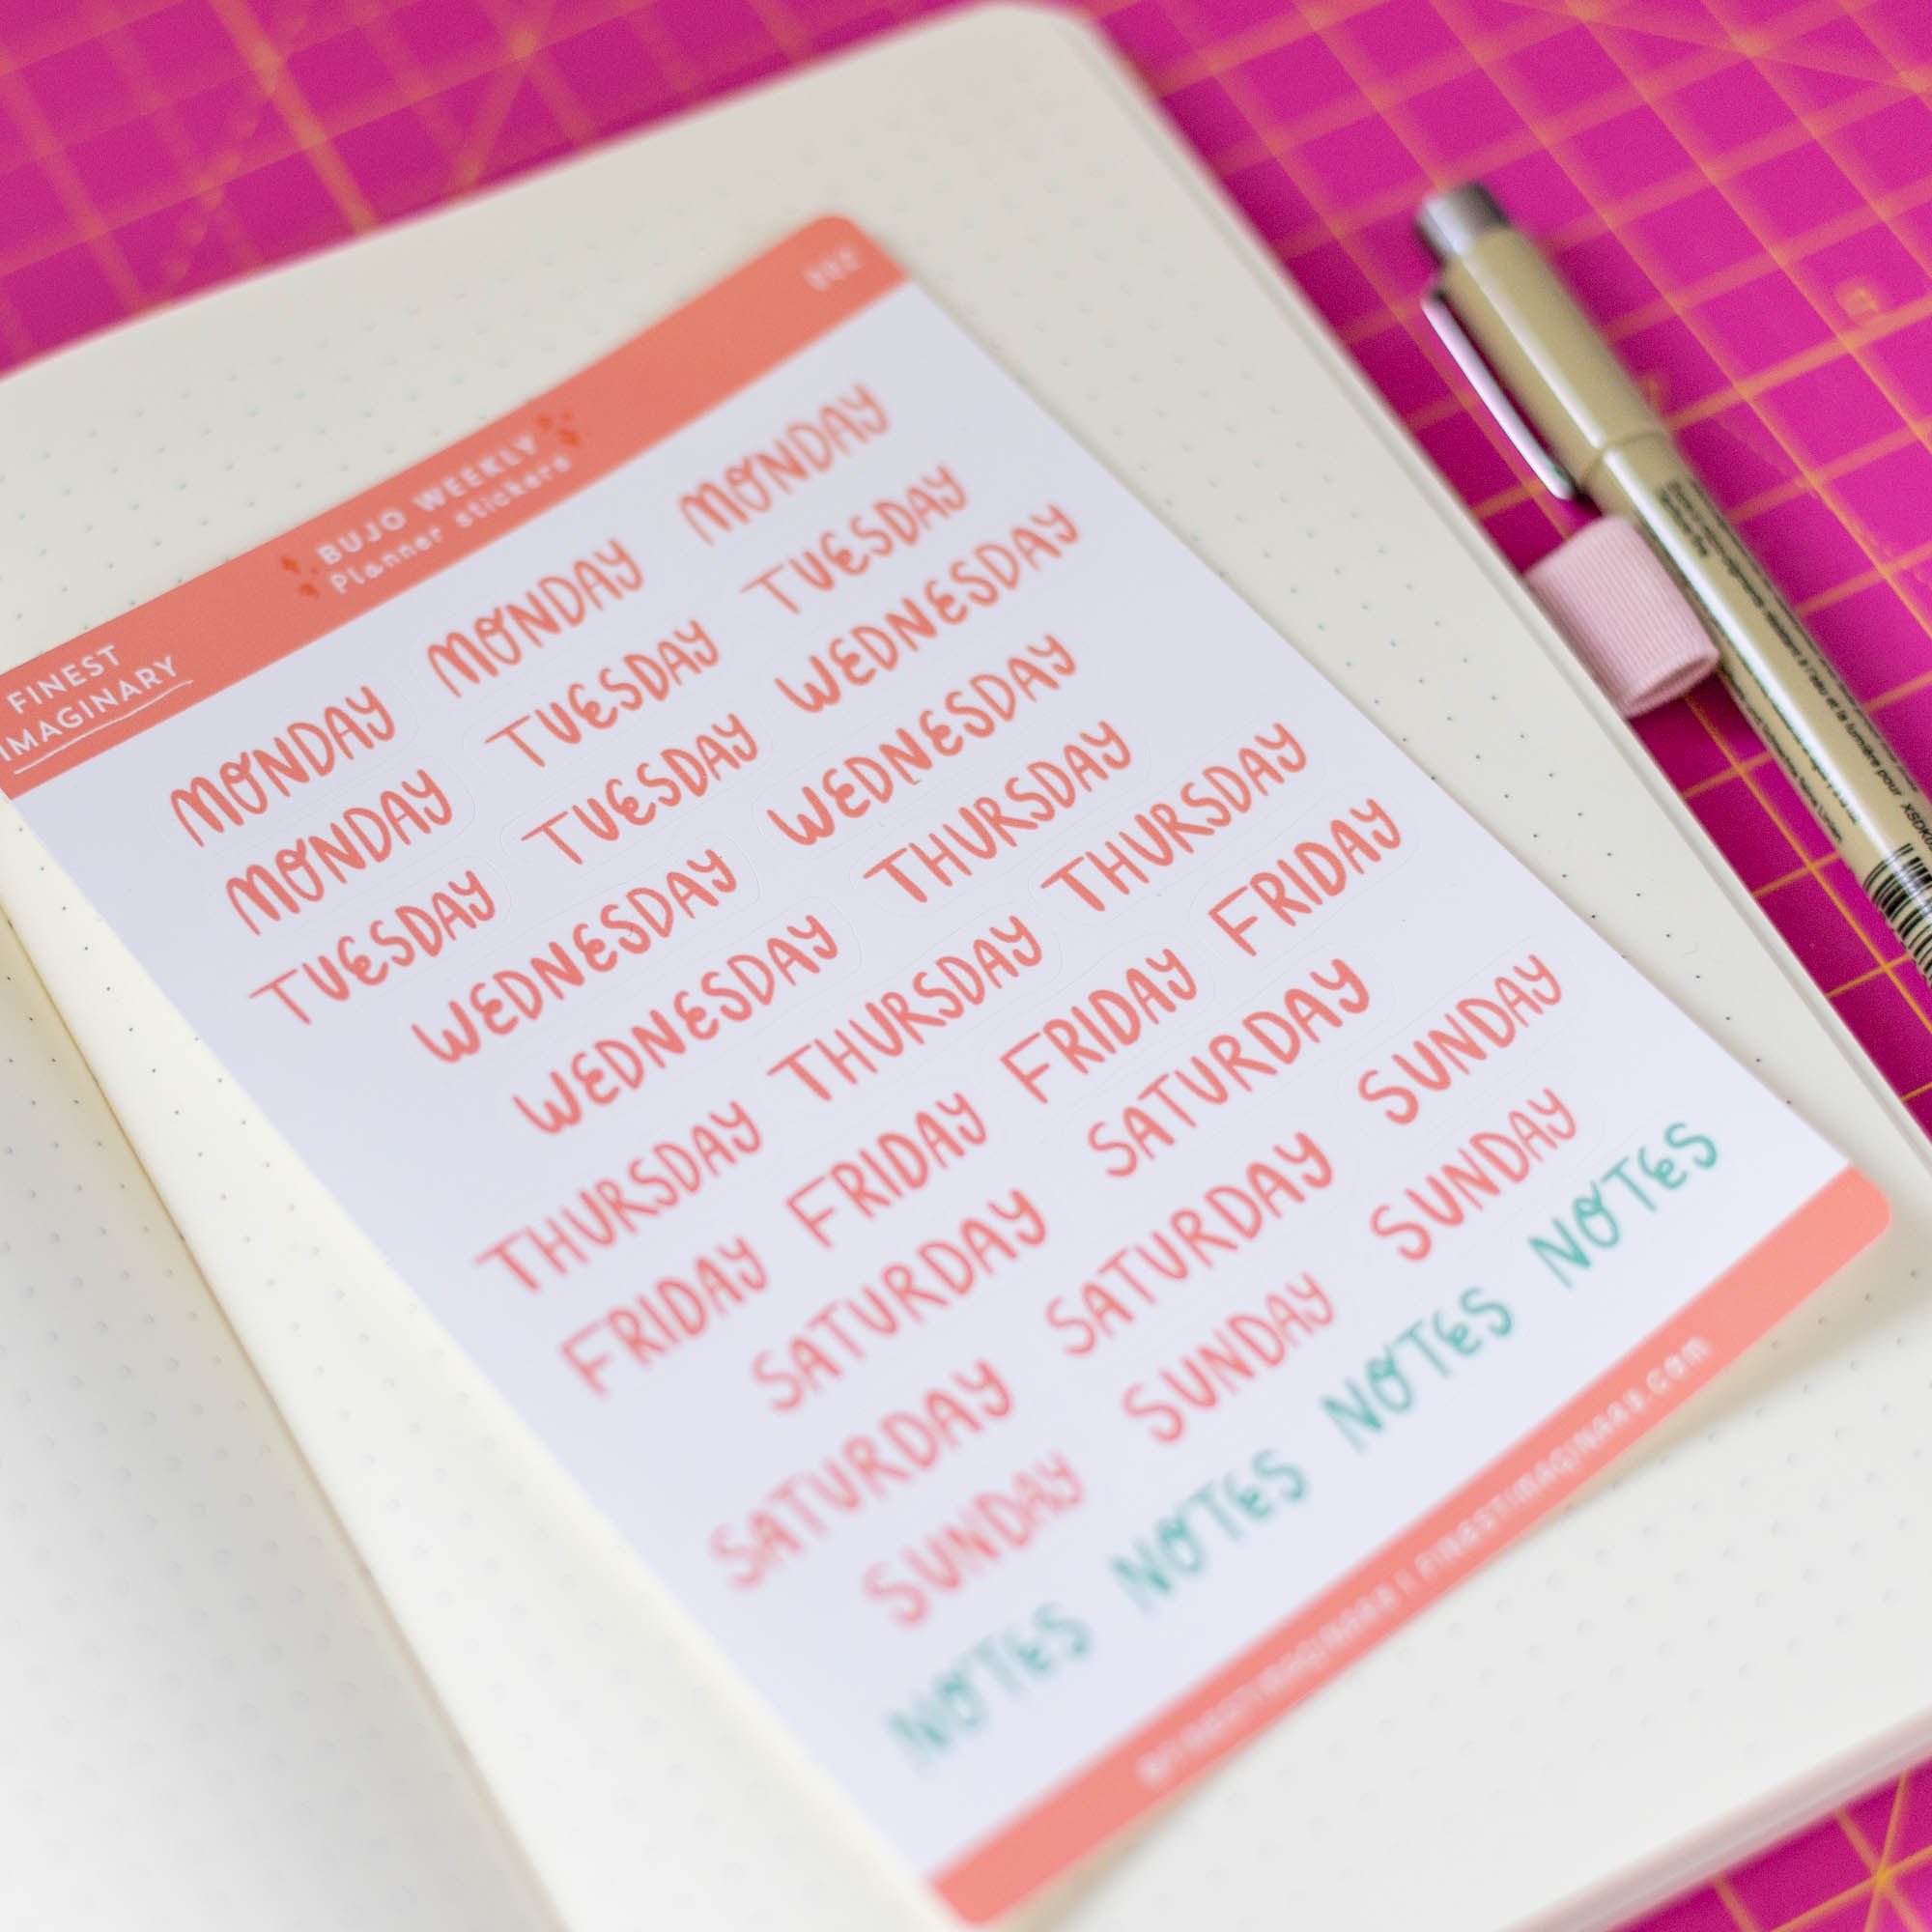 FINEST
IMAGINARY
BUJO WEEKLY
Planner stickers
MONDAY MONDAY MONDAY
MONDAY TUESDAY TUESDAY
TUESDAY TUESDAY WEDNESDAY
WEDNESDAY WEDNESDAY
WEDNESDAY THURSDAY
THURSDAY THURSDAY THURSDAY
FRIDAY FRIDAY FRIDAY FRIDAY
SATURDAY SATURDAY
SATURDAY SATURDAY SUNDAY
SUNDAY SUNDAY SUNDAY
NOTES NOTES NOTES NOTES
@FINESTIMAGINARY | FINESTIMAGINARY.com